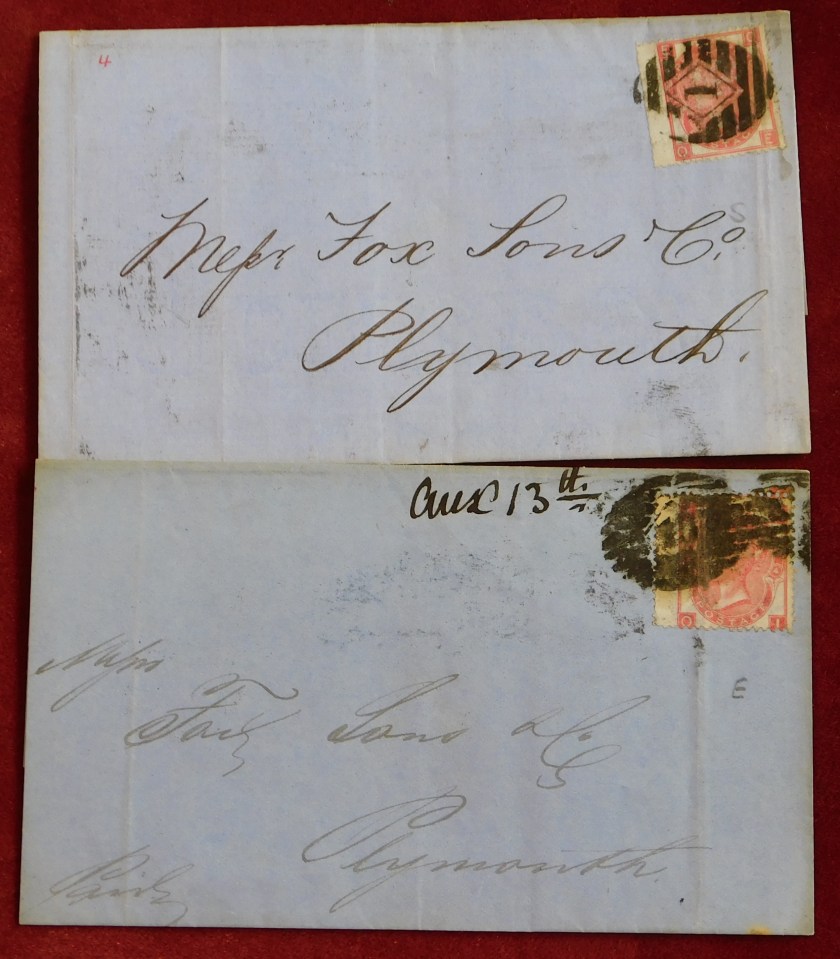 4
1
Q E
S
Messrs Fox Sons & Co.
Plymouth.
13th
POSTAGE
Q I
E
Messrs
Fox
Sons & Co
Plymouth
Paid